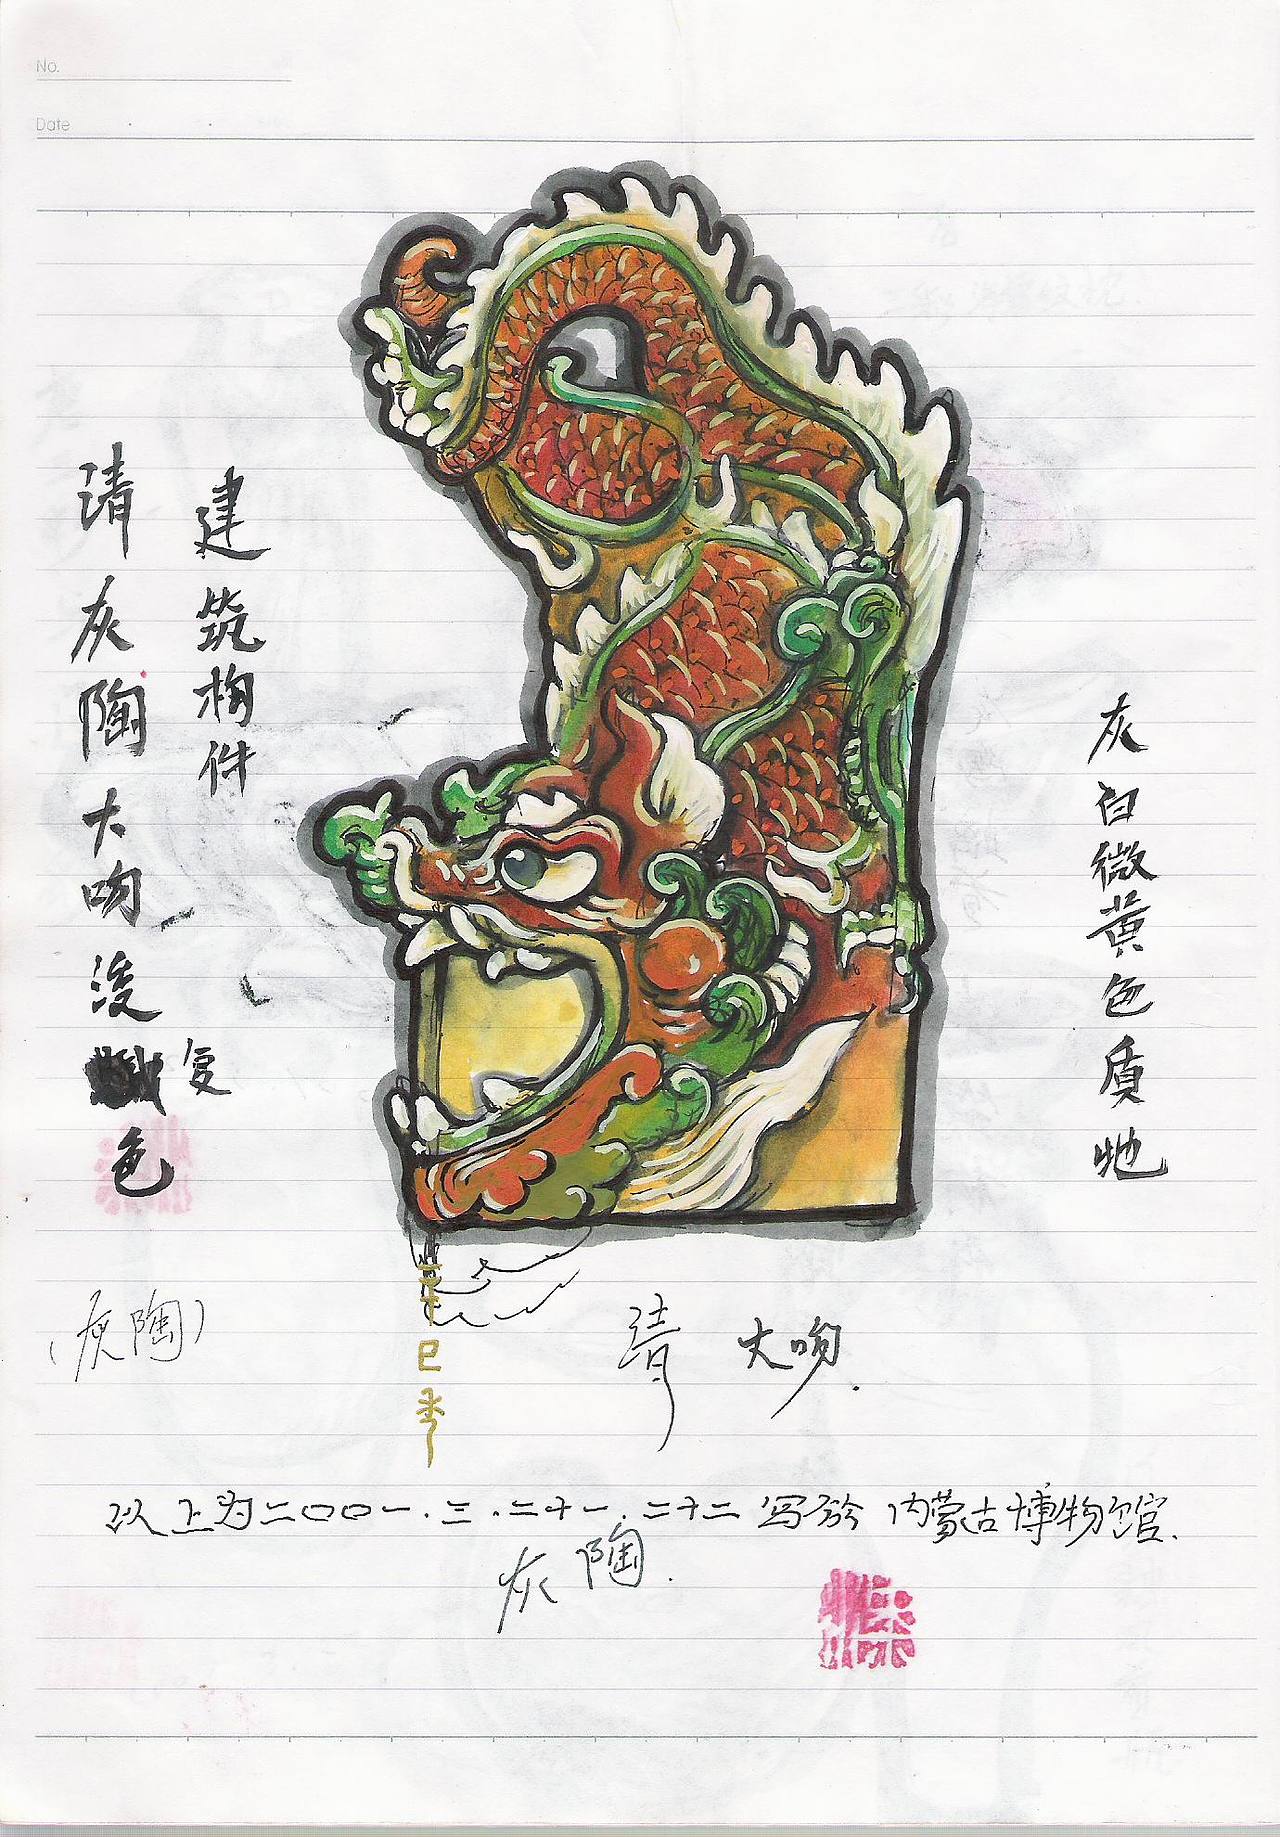 No.
Date
建筑构件
清灰陶大吻浚
复
色
灰白微黄色质地
(灰陶)
辛巳
清 大吻.
以上为二〇〇一.三.二十一.二十二写於内蒙古博物馆.
灰陶.